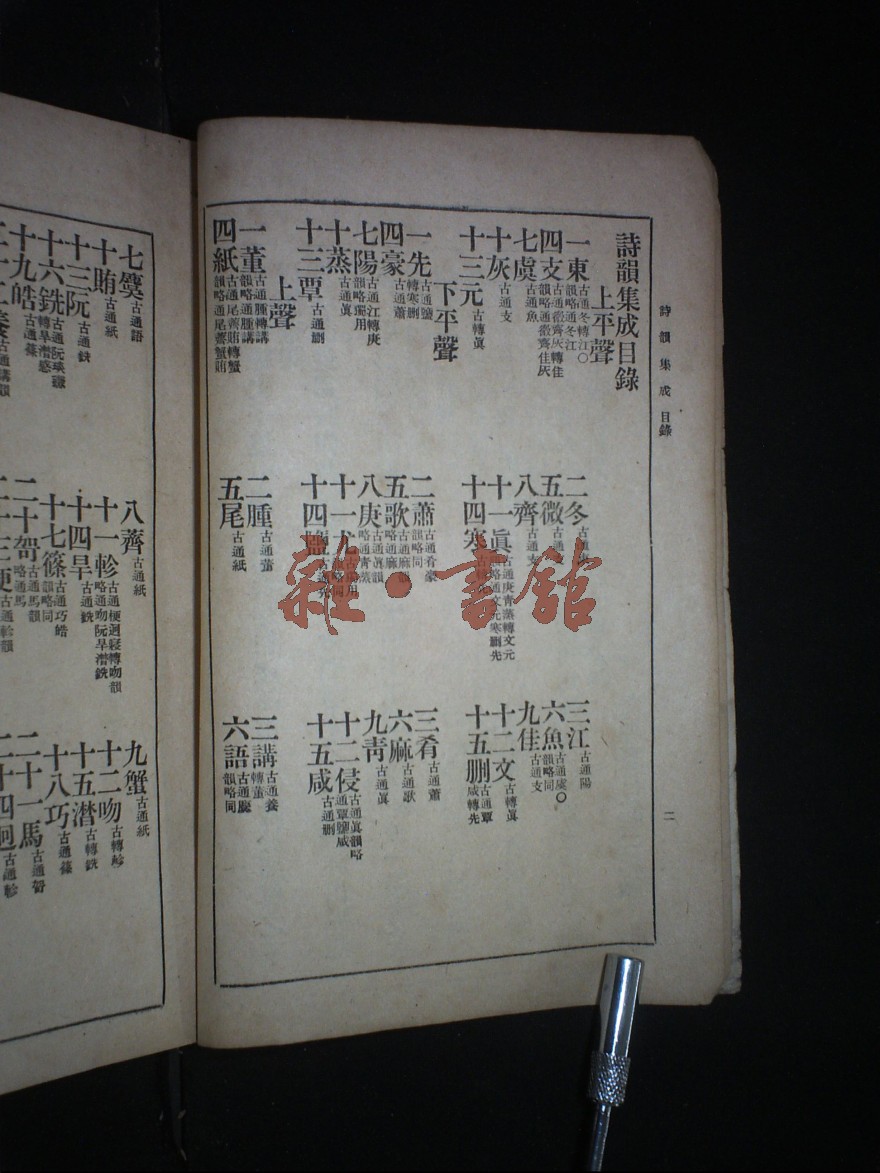 詩韻集成目錄
上平聲
一東 古通冬轉江○韻略通冬江
二冬
三江 古通陽
四支 古通微齊灰轉佳韻略通微齊佳灰
五微
六魚 古通虞○韻略同
七虞 古通魚
八齊
九佳 古通支
十灰 古通支
十一眞 古通庚青蒸轉文元韻略通文元寒刪先
十二文 古轉眞
十三元 古轉眞
十四寒
十五刪 古通覃咸轉先
下平聲
一先 古通鹽轉寒刪
二蕭 古通肴豪韻略同
三肴 古通蕭
四豪 古通蕭
五歌 古通麻韻略通麻
六麻 古通歌
七陽 古通江轉庚韻略獨用
八庚 古通眞韻略通青蒸
九青 古通眞
十蒸 古通眞
十一尤
十二侵 古通眞韻略通覃鹽咸
十三覃 古通刪
十四鹽
十五咸 古通刪
上聲
一董 古通腫轉講韻略通腫講
二腫 古通董
三講 古通養轉董
四紙 古通尾薺賄轉蟹韻略通尾薺蟹賄
五尾 古通紙
六語 古通麌韻略同
詩韻集成 目錄
二
七麌 古通語
八薺 古通紙
九蟹 古通紙
十賄 古通紙
十一軫 古通梗迥寢轉吻韻略通吻阮旱潸銑
十二吻 古轉軫
十三阮 古通銑
十四旱 古通銑
十五潸 古轉銑
十六銑 古通阮琰豏轉旱潸感
十七篠 古通巧皓韻略同
十八巧 古通篠
十九皓 古通篠
二十哿 古通馬韻略通馬
二十一馬 古通哿
雜·書館